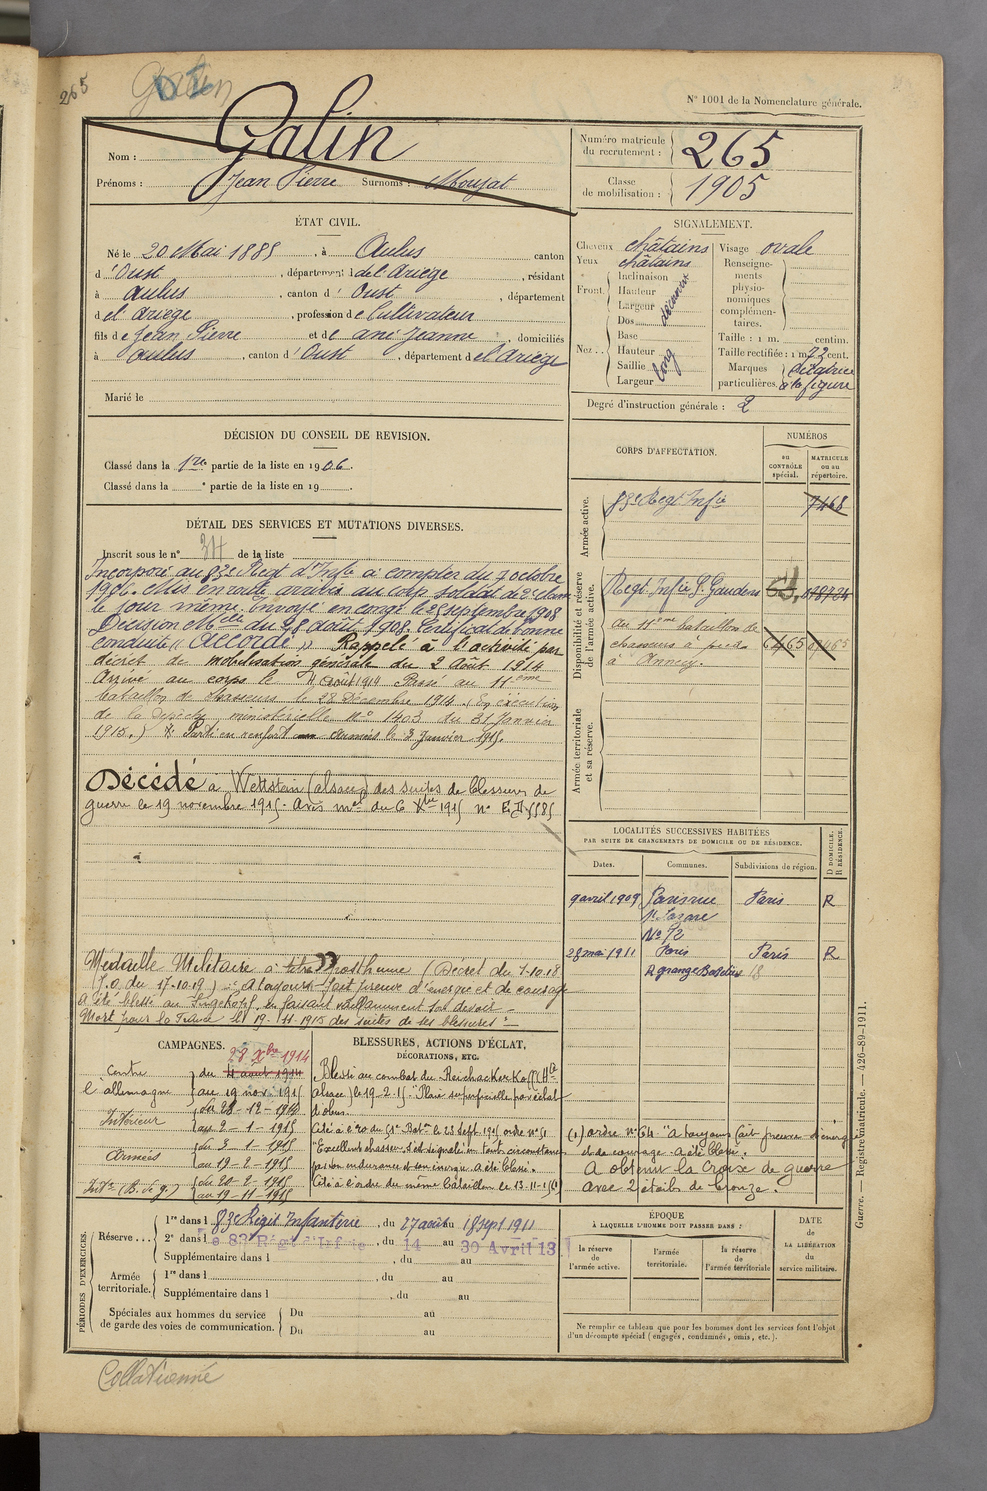 265
Galin
N° 1001 de la Nomenclature générale.
Nom : Galin
Prénoms : Jean Pierre Surnoms : Mouzat
Numéro matricule du recrutement : 265
Classe de mobilisation : 1905
ÉTAT CIVIL.
Né le 20 Mai 1885, à Aulus canton
d'Oust, département de l'Ariège, résidant
à Aulus, canton d'Oust, département
de l'Ariège, profession de Cultivateur
fils de Jean Pierre et de Jeanne, domiciliés
à Aulus, canton d'Oust, département de l'Ariège
Marié le
SIGNALEMENT.
Cheveux châtains
Yeux châtains
Front. Inclinaison
Hauteur
Largeur
découvert
Nez.. Dos
Base
Hauteur
Saillie
Largeur
long
Visage ovale
Renseignements physionomiques complémentaires.
Taille : 1 m. centim.
Taille rectifiée : 1 m 72 cent.
Marques particulières. cicatrice à la figure
Degré d'instruction générale : 2
DÉCISION DU CONSEIL DE REVISION.
Classé dans la 1re partie de la liste en 1906.
Classé dans la ° partie de la liste en 19 .
CORPS D'AFFECTATION.
NUMÉROS
au CONTRÔLE spécial.
MATRICULE ou au répertoire.
Armée active.
83e Regt Infie 7468
Disponibilité et réserve de l'armée active.
Regt Infie St Gaudens
du 11eme bataillon de
chasseurs à pied
à Annecy.
Armée territoriale et sa réserve.
DÉTAIL DES SERVICES ET MUTATIONS DIVERSES.
Inscrit sous le n° 34 de la liste
Incorporé au 83e Regt d'Infie à compter du 7 octobre
1906. Mis en route arrivé au corps soldat de 2e classe
le jour même. Envoyé en congé le 25 septembre 1908
Décision Mlle du 28 août 1908. Certificat de bonne
conduite "Accordé" Rappelé à l'activité par
décret de mobilisation générale du 2 Août 1914
Arrivé au corps le 4 août 1914 Passé au 11ème
bataillon de chasseurs le 28 Décembre 1914. (En exécution
de la dépêche ministérielle n° 1403 du 31 Janvier
1915.) Parti en renfort aux armées le 3 Janvier 1915.
Décédé à Wettstein (alsace) des suites de blessures de
guerre le 19 novembre 1915. Avis mel du 6 Xbre 1915 n°
Médaille Militaire à titre Posthume (Décret du 7-10-18
(J.O. du 17.10.19) :- A toujours fait preuve d'énergie et de courage
A été blessé au en faisant vaillamment son devoir -
Mort pour la France le 19-11-1915 des suites de ses blessures :-
LOCALITÉS SUCCESSIVES HABITÉES
PAR SUITE DE CHANGEMENTS DE DOMICILE OU DE RÉSIDENCE.
Dates. Communes. Subdivisions de région. D DOMICILE. R RÉSIDENCE.
9 avril 1909 Paris rue St Lazare Paris R
28 mai 1911 Paris Paris R
CAMPAGNES.
Contre l'allemagne
28 Xbre 1914
du 4 août 1914
au 19 nov. 1915
Intérieur
au 2-1-1915
Armées
du 3-1-1915
au 19-2-1915
Intr (B. de g.)
du 20-2-1915
au 19-11-1915
BLESSURES, ACTIONS D'ÉCLAT,
DÉCORATIONS, ETC.
Blessé au combat du Reichackerkopf (Hte
alsace) le 19-2-15 "Plaie superficielle par éclat
d'obus.
"Excellent chasseur s'est signalé en toute circonstance
par son endurance et son énergie. a été blessé.
Cité à l'ordre du même bataillon le 13-11-15 (1)
(1) ordre n° 64 "a toujours fait preuve d'énergie
et de courage. a été blessé.
A obtenu la Croix de guerre
avec 2 étoiles de bronze.
PÉRIODES D'EXERCICES.
Réserve... 1re dans l 83e Régit Infanterie, du 27 août au 18 sept 1911
2e dans l e 83 Régt d'Infie, du 14 au 30 Avril 13
Supplémentaire dans l , du au
Armée territoriale. 1re dans l , du au
Supplémentaire dans l , du au
Spéciales aux hommes du service de garde des voies de communication. Du au
Du au
ÉPOQUE
À LAQUELLE L'HOMME DOIT PASSER DANS :
la réserve de l'armée active.
l'armée territoriale.
la réserve de l'armée territoriale
DATE DE LA LIBÉRATION du service militaire.
Ne remplir ce tableau que pour les hommes dont les services font l'objet
d'un décompte spécial (engagés, condamnés, omis, etc.).
Guerre. — Registre matricule. — 426-89-1911.
Collationné